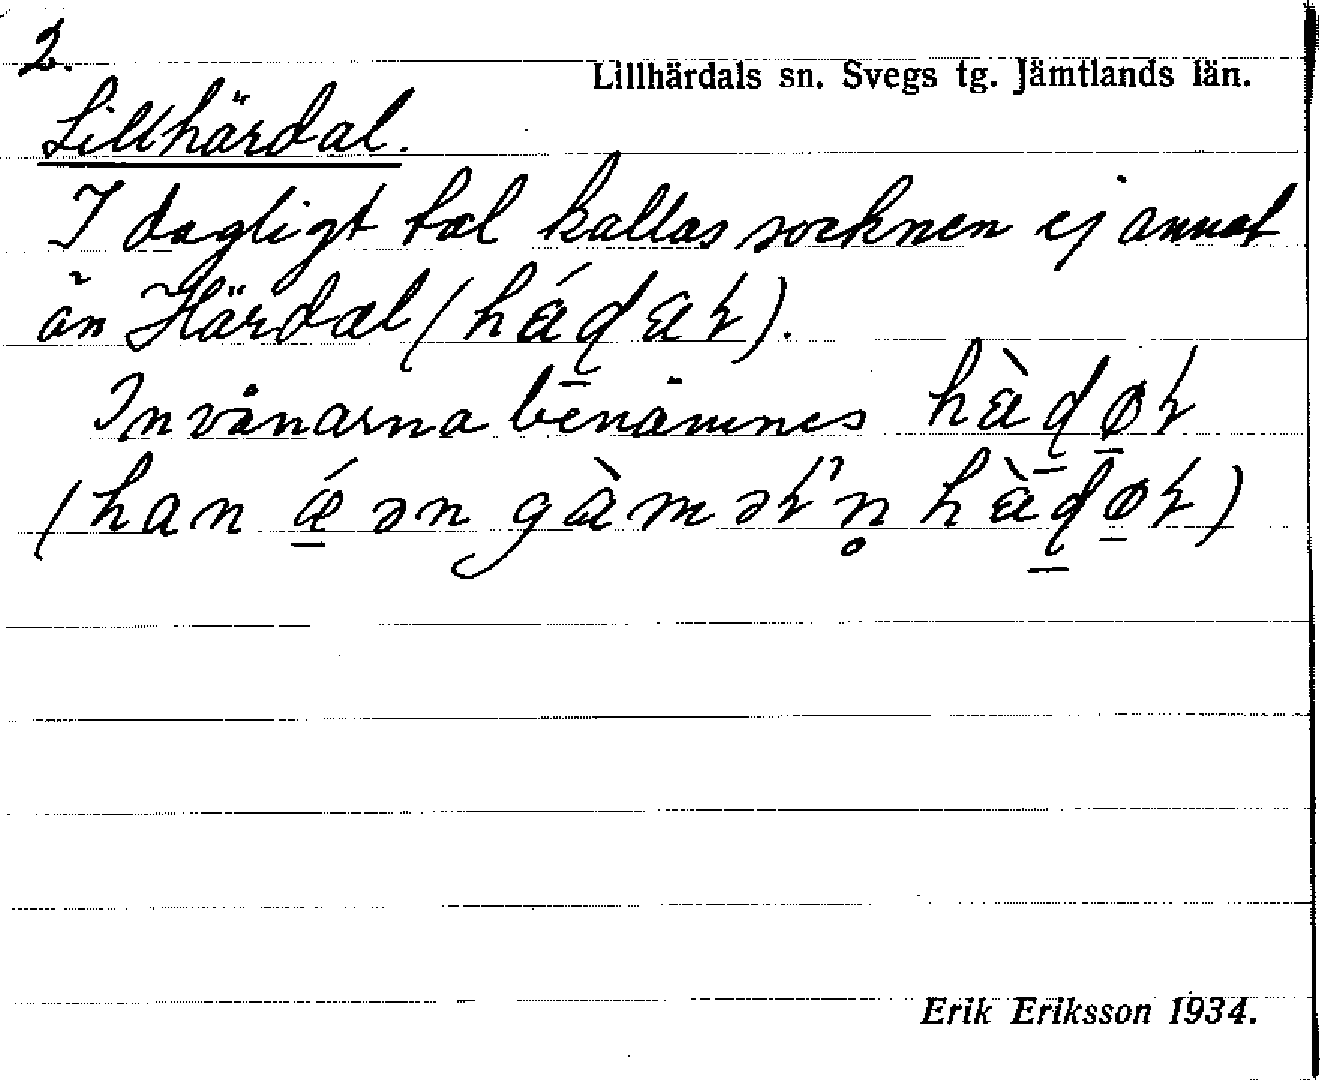 2.
Lillhärdals sn. Svegs tg. Jämtlands län.
Lillhärdal.
I dagligt tal kallas socknen ej annat
än Härdal (
Invånarna benämnes
(han
Erik Eriksson 1934.